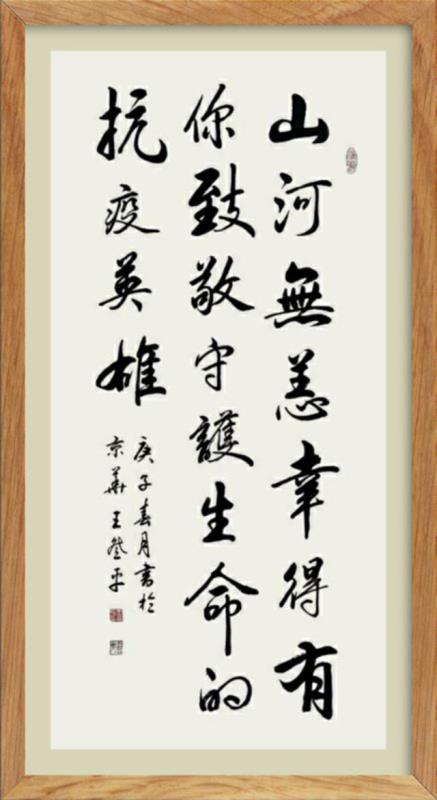 山河無恙幸得有
你致敬守護生命的
抗疫英雄
庚子春月書於
京華王登平